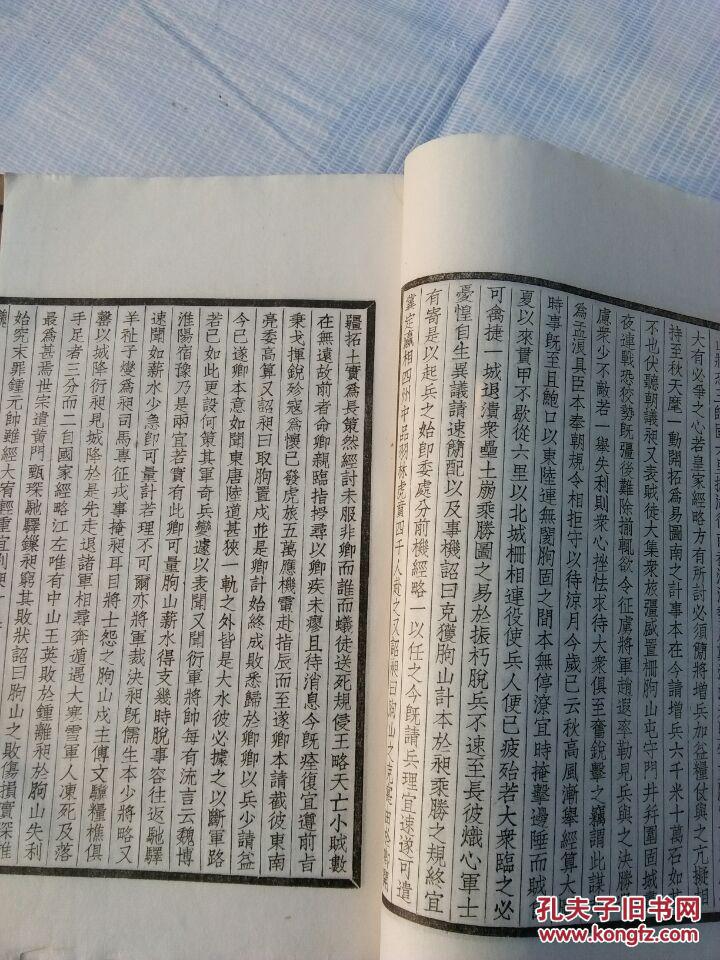 大有必爭之心若皇家經略方有所討必須將增兵加益糧與之亢擬相
持至秋天麾一動開拓爲易圖南之計事本在今請增兵六千米十萬石如其
不也伏聽朝議昶又表賊徒大集衆旅彊盛置柵朐山屯守門井并圍固城
夜連戰恐狡勢既彊後難除揃輒欲令征虜將軍趙遐率勒見兵與之決勝
慮衆少不敵若一舉失利則衆心挫怯求待大衆俱至奮銳擊之竊謂此謀
爲孟浪具臣本奉朝規令相拒守以待涼月今歲已云秋高風漸舉經算大
時事既至且鮑口以東陸運無閡朐固之間本無停潦宜時掩擊邊陲而賊
夏以來貫甲不歇從六里以北城柵相連役使兵人便已疲殆若大衆臨之必
可禽捷一城退潰衆壘土崩乘勝圖之易於振朽脫兵不速至長彼熾心軍士
憂惶自生異議請速簡配以及事機詔曰克獲朐山計本於昶乘勝之規終宜
有寄是以起兵之始即委處分前機經略一以任之今既請兵理宜速遂可遣
冀定瀛相四州中品羽林虎賁四千人赴之又詔昶曰朐山之克
疆拓土實爲長策然經討未服非卿而誰而蟻徒送死規侵王略天亡小賊數
在無遠故前者命卿親臨指授尋以卿疾未瘳且待消息今既痊復宜遵前旨
秉戎揮銳殄寇爲懷已發虎旅五萬應機電赴指辰而至遂卿本請截彼東南
亮委高算又詔昶曰取朐置戍並是卿計始終成敗悉歸於卿卿以兵少請益
今已遂卿本意如聞東唐陸道甚狹一軌之外皆是大水彼必據之以斷軍路
若已如此更設何策其軍奇兵變遽以表聞又聞衍軍將帥每有流言云魏博
淮陽宿豫乃是兩宜若實有此卿可量朐山薪水得支幾時脫事容往返馳驛
速聞如薪水少急即可量計若理不可爾亦將軍裁決昶既儒生本少將略又
羊祉子燮爲昶司馬專征戎事掩昶耳目將士怨之朐山戍主傅文驥糧樵俱
罄以城降衍昶見城降於是先走退諸軍相尋奔遁遇大寒雪軍人凍死及落
手足者三分而二自國家經略江左唯有中山王英敗於鍾離昶於朐山失利
最爲甚焉世宗遣黃門甄琛馳驛鏁昶窮其敗狀詔曰朐山之敗傷損實深推
始究末罪鍾元帥雖經大宥輕重宜別昶
孔夫子旧书网
www.kongfz.com